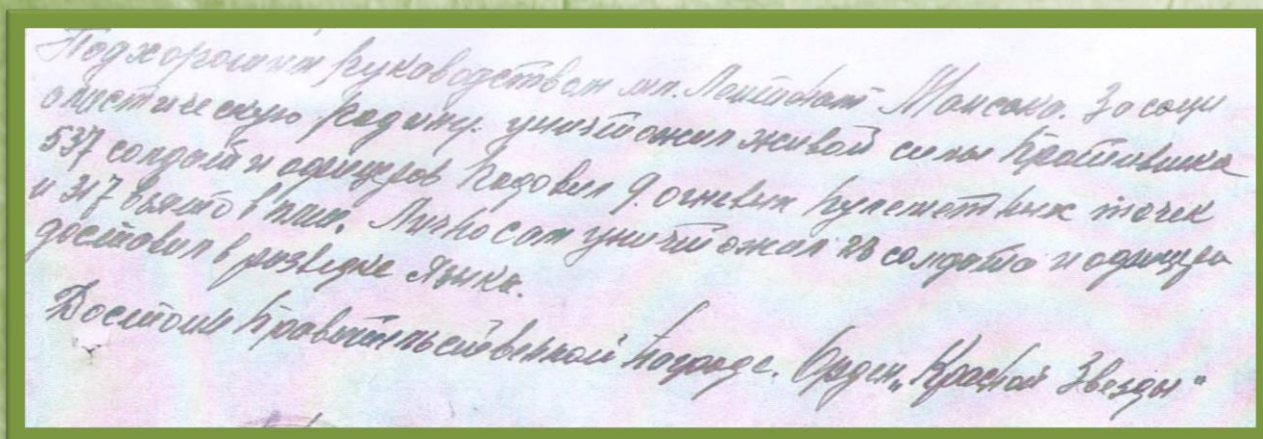 Под хорошим руководством мл. Лейтенант Моисака. За соци
алистическую родину. уничтожил живой силы противника
537 солдат и офицеров подовил 9. огневых пулеметных точек
и 317 взято в плен. Лично сам уничтожил 28 солдата и офицера
доставил в разведке языка.
Достоин правительственной награде. Орден „Красной Звезды"